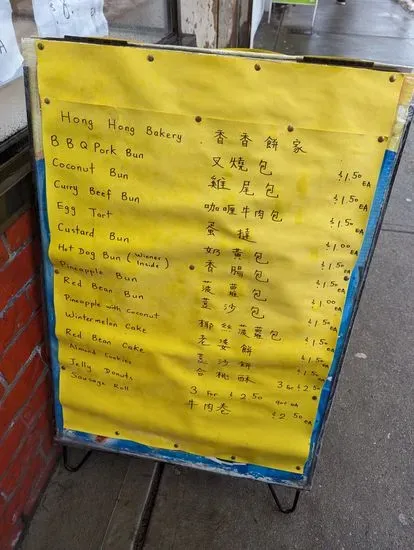 Hong Hong Bakery 香香餅家
BBQ Pork Bun 叉燒包 $1.50 EA
Coconut Bun 雞尾包 $1.50 EA
Curry Beef Bun 咖喱牛肉包 $1.50 EA
Egg Tart 蛋撻 $1.00 EA
Custard Bun 奶黃包 $1.50 EA
Hot Dog Bun (Wiener Inside) 香腸包 $1.50 EA
Pineapple Bun 菠蘿包 $1.00 EA
Red Bean Bun 荳沙包 $1.50 EA
Pineapple with Coconut 椰丝菠蘿包 $1.50 EA
Wintermelon Cake 老婆餅 $1.50 EA
Red Bean Cake 荳沙餅 $1.50 EA
Almond Cookies 合桃酥 3 for $2.50
Jelly Donuts 3 For $2.50
Sausage Roll 牛肉卷 $2.50 EA